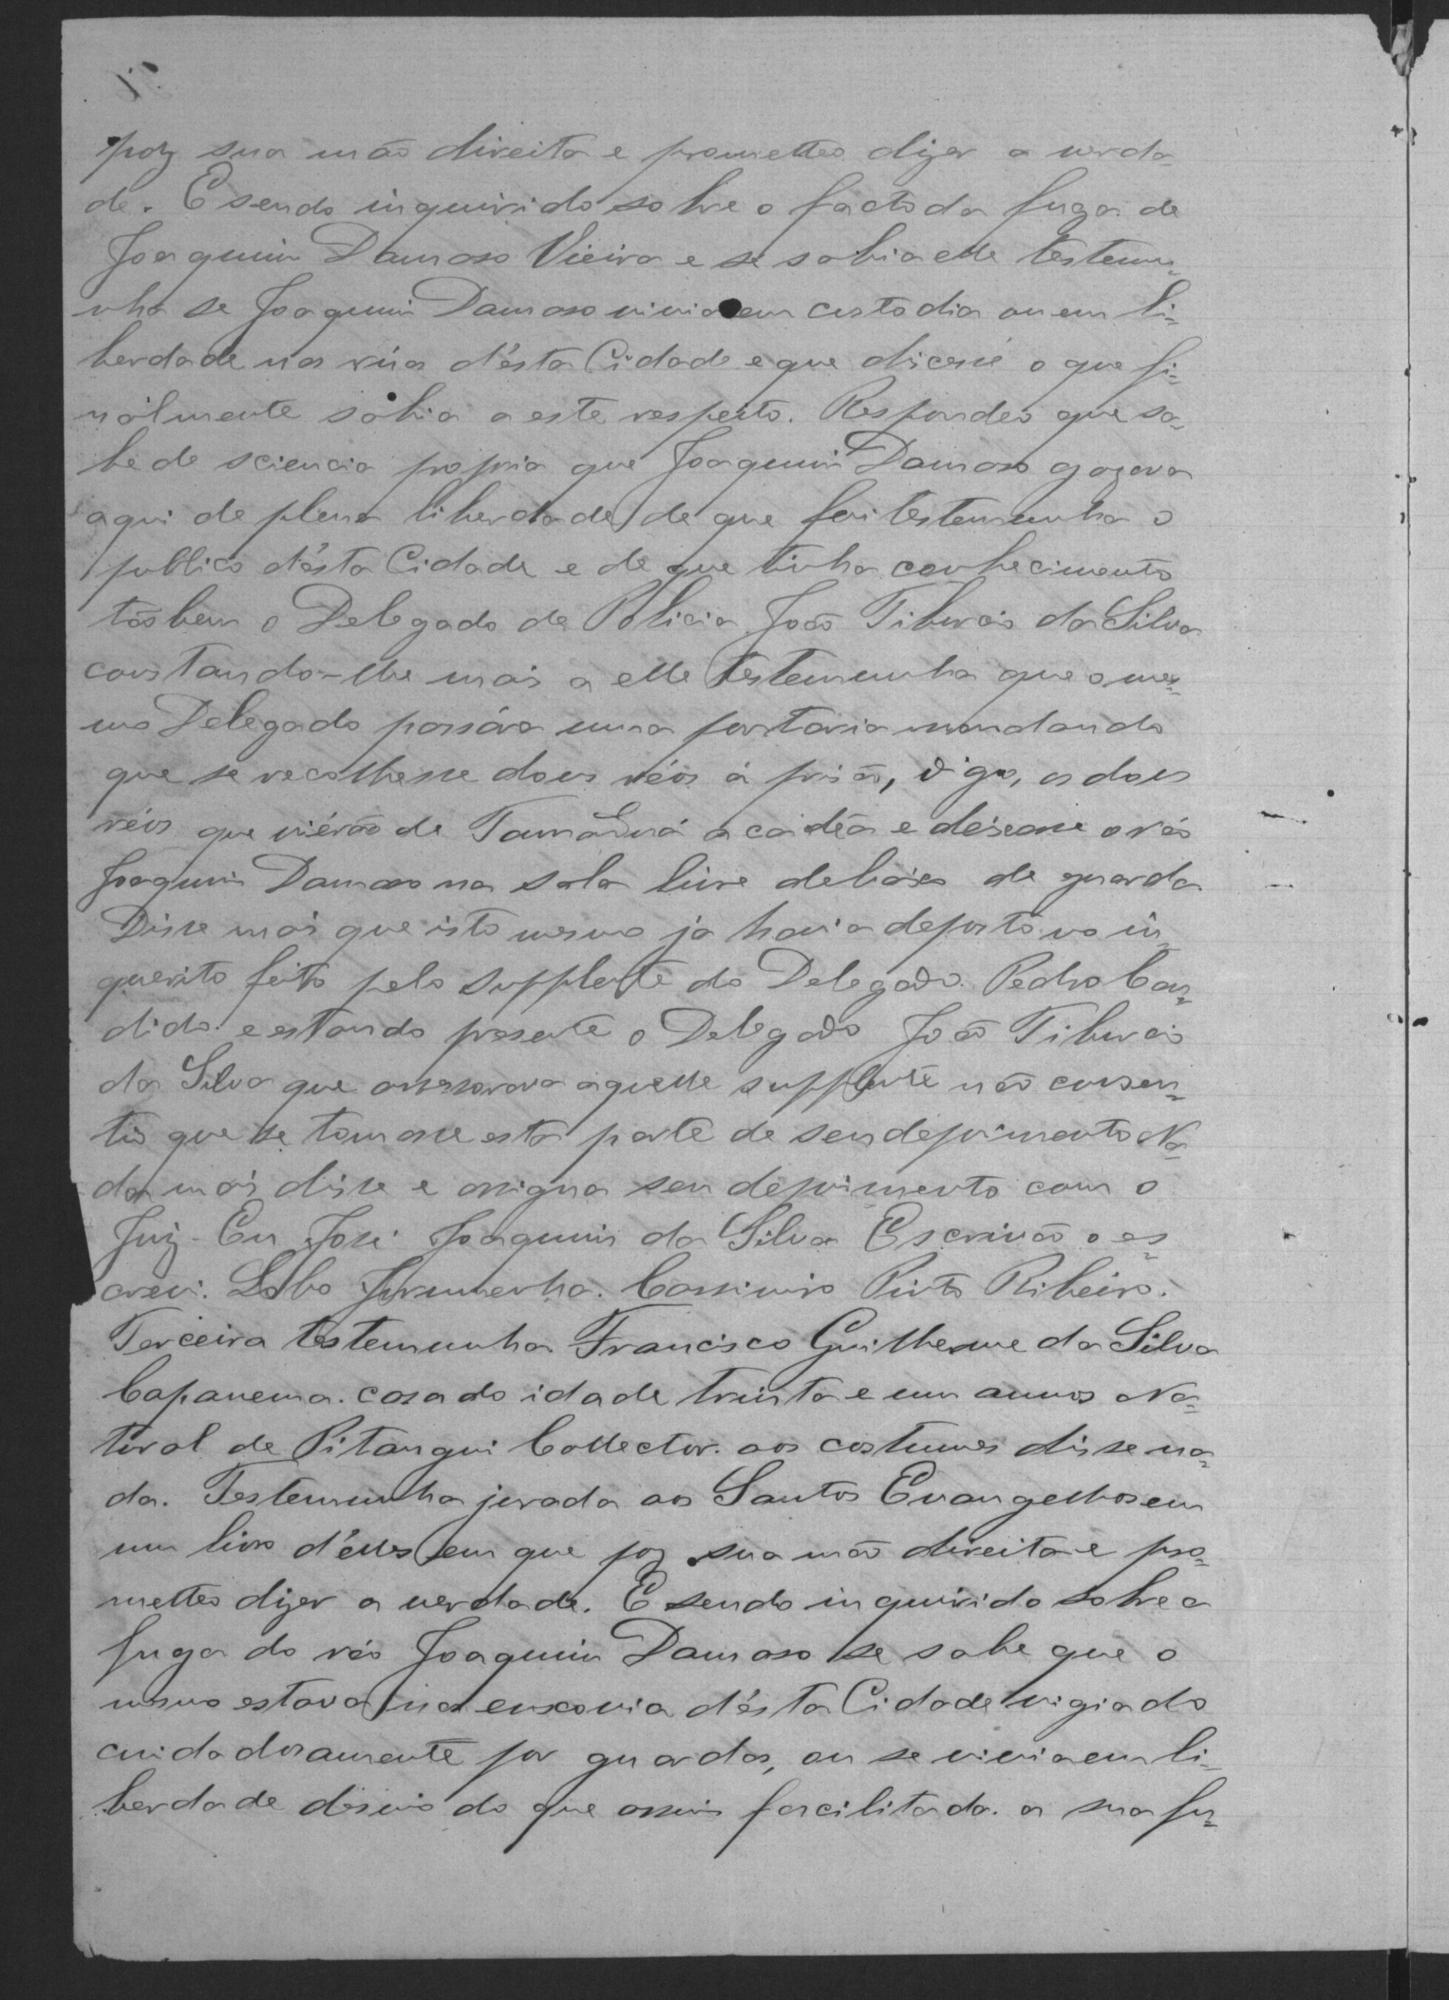 poz sua mão direita e prometteo dizer a verda-
de. E sendo inquirido sobre o facto da fuga de
Joaquim Damaso Vieira e se sabia elle testemu-
nha se Joaquim Damaso vivia em custodia ou em li-
berdade nas rúas d'ésta Cidade e que dicesse o que fi-
nalmente sabia a este respeito. Respondeo que sa-
be de sciencia propria que Joaquim Damaso gozava
aqui de plena liberdade de que foi testemunha o
publico d'ésta Cidade e de que tinha conhecimento
tãobem o Delegado de Policia João Tiburcio da Silva
constando-lhe mais a elle testemunha que o mes-
mo Delegado passára uma portaria mandando
que se recolhesse dous réos á prisão, digo, os dous
réos que viérão de a cadêa e deixasse o réo
Joaquim Damaso na sala livre debaixo de guarda
Disse mais que isto mesmo ja havia deposto no in-
querito feito pelo supplente do Delegado Pedro Can-
dido e estando presente o Delegado João Tiburcio
da Silva que assessorava aquelle supplente não consen-
tio que se tomasse esta parte de seu depoimento Na-
da mais disse e assigna seu depoimento com o
Juiz. Eu José Joaquim da Silva Escrivão o es-
crevi. Lobo Jurumenha. Cassimiro Pinto Ribeiro.
Terceira testemunha Francisco Guilherme da Silva
Capanema. casado idade trinta e um annos Na-
tural de Pitangui Collector. aos costumes disse na-
da. Testemunha jurada aos Santos Evangelhos em
um livro d'elles em que poz sua mão direita e pro-
metteo dizer a verdade. E sendo inquirido sobre a
fuga do réo Joaquim Damaso se sabe que o
mesmo estava na enxovia d'ésta Cidade vigiado
cuidadosamente por guardas, ou se vivia em li-
berdade do que assim facilitada. a sua fu-